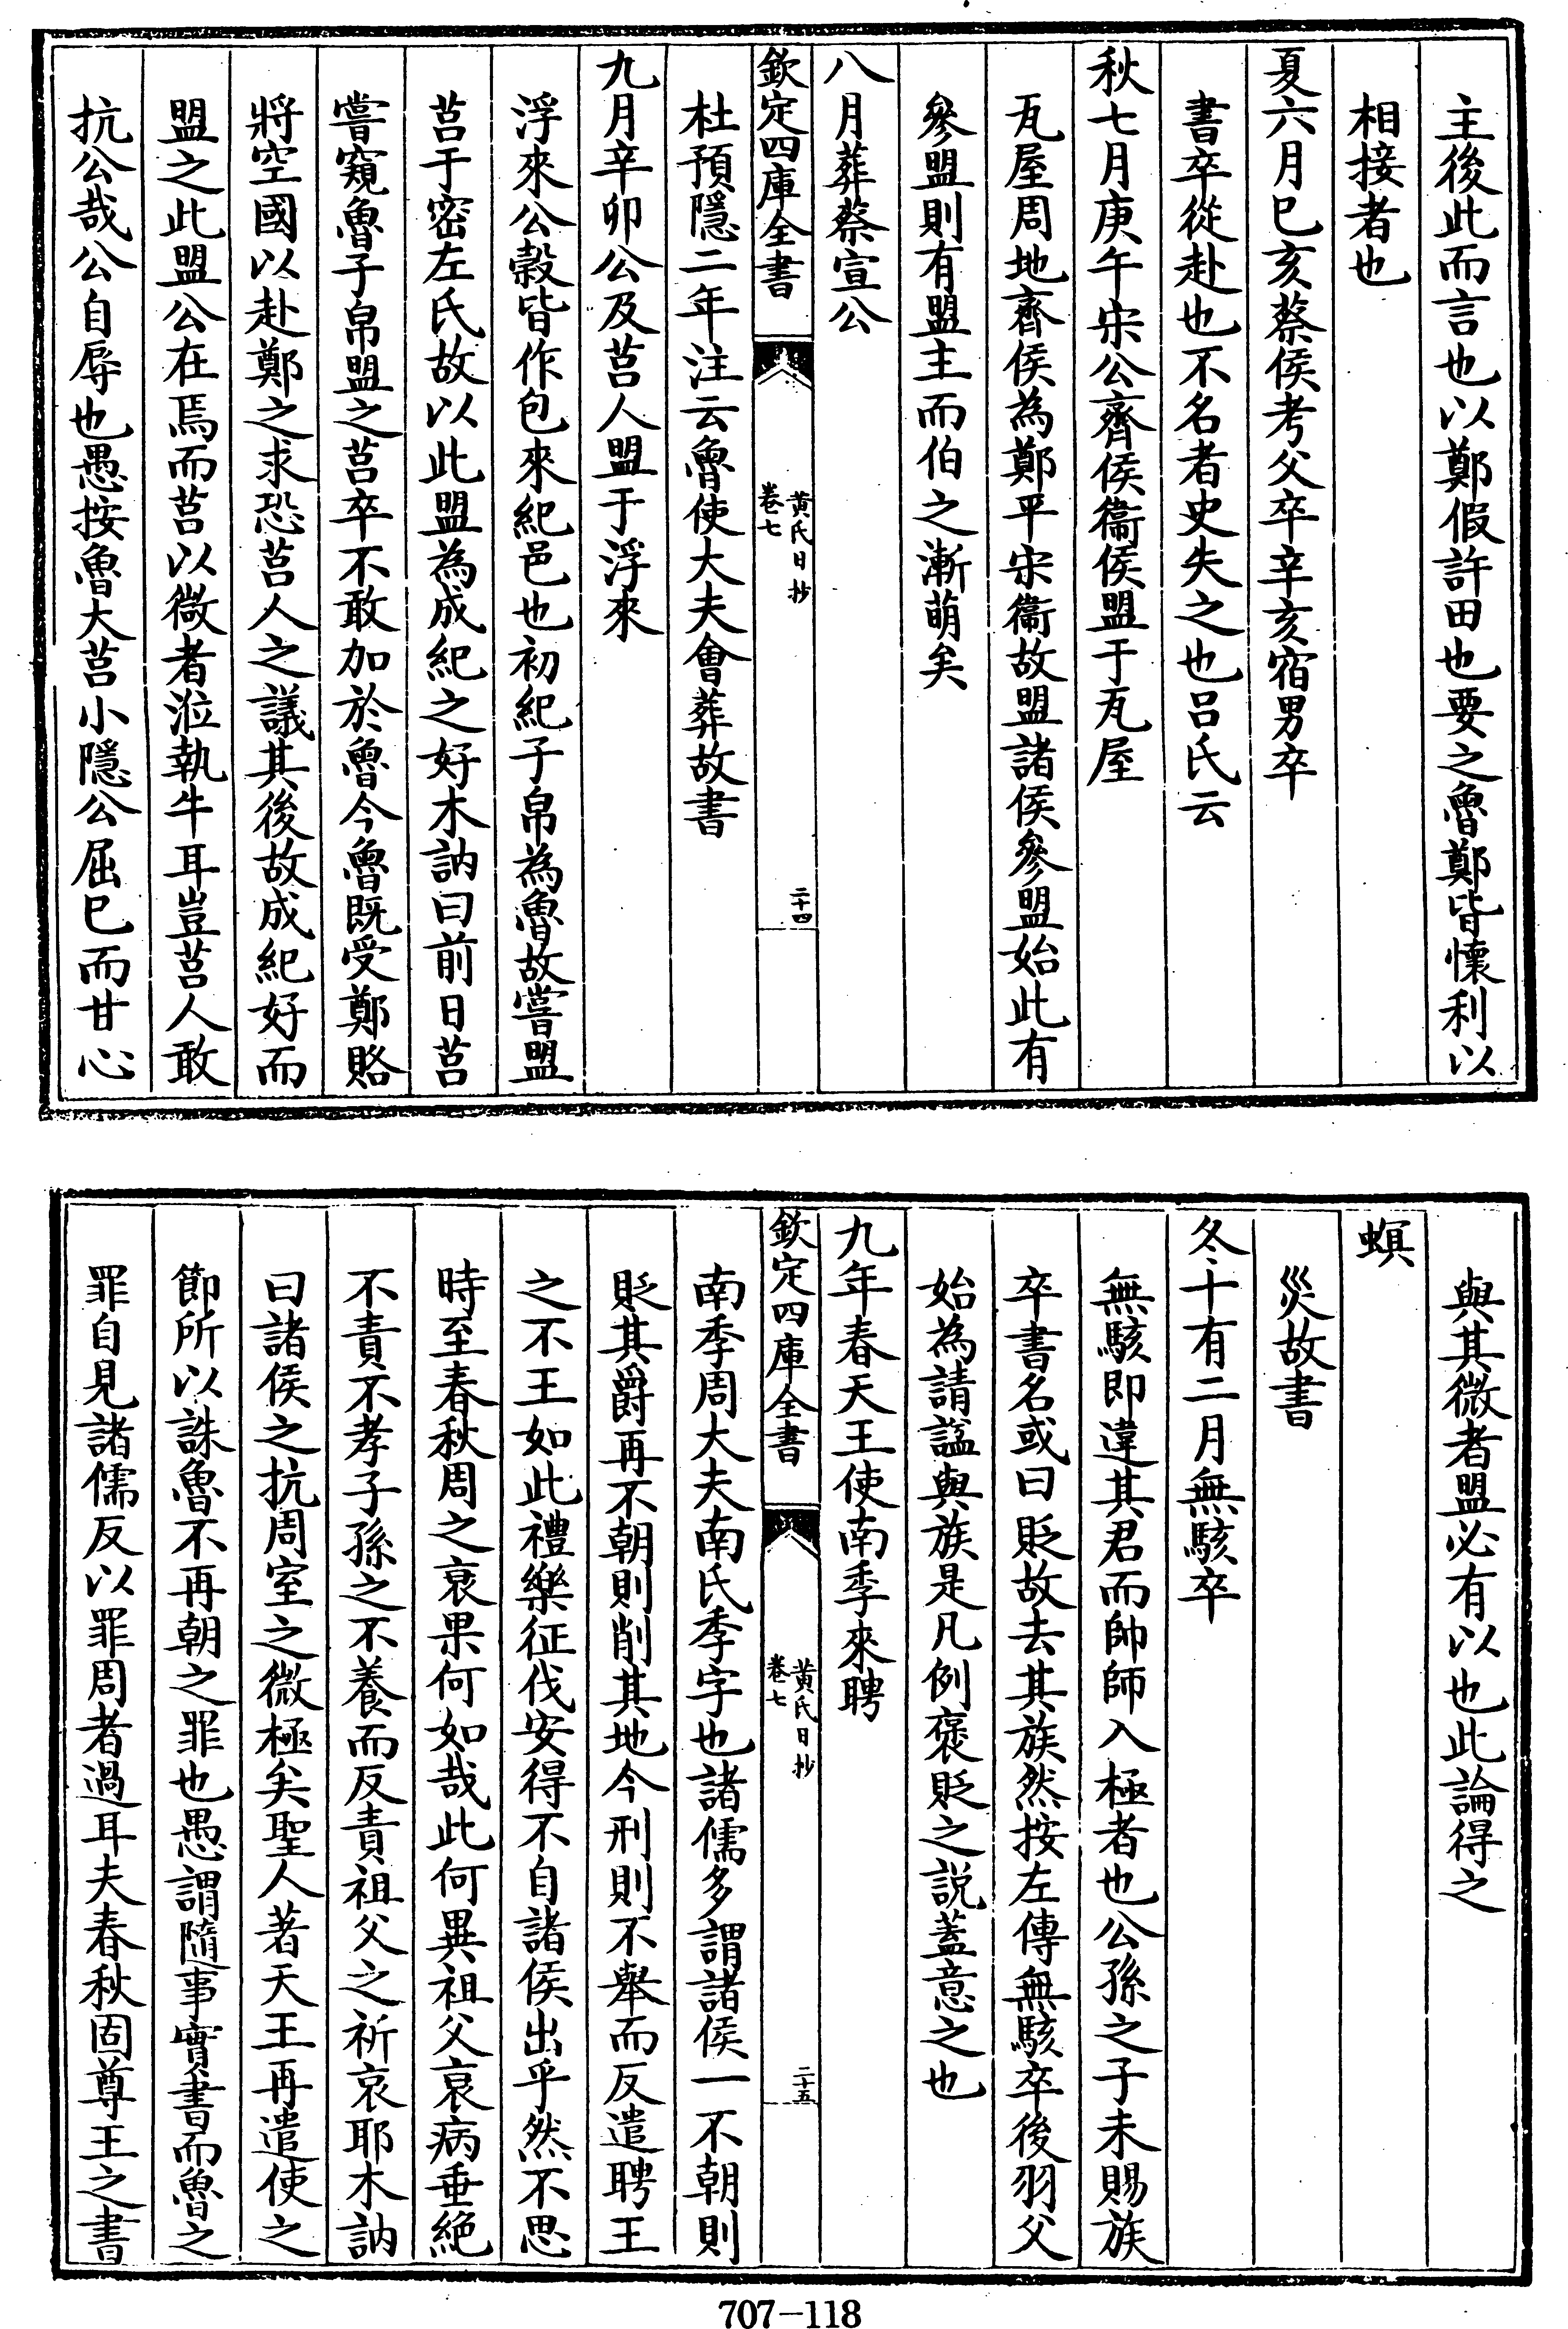 主後此而言也以鄭假許田也要之魯鄭皆懷利以
相接者也
夏六月己亥蔡侯考父卒辛亥宿男卒
書卒從赴也不名者史失之也呂氏云
秋七月庚午宋公齊侯衞侯盟于瓦屋
瓦屋周地齊侯為鄭平宋衞故盟諸侯參盟始此有
參盟則有盟主而伯之漸萌矣
八月葬蔡宣公
欽定四庫全書
黃氏日抄
卷七
二十四
杜預隱二年注云魯使大夫會葬故書
九月辛卯公及莒人盟于浮來
浮來公榖皆作包來紀邑也初紀子帛為魯故嘗盟
莒于密左氏故以此盟為成紀之好木訥曰前日莒
嘗窺魯子帛盟之莒卒不敢加於魯今魯既受鄭賂
將空國以赴鄭之求恐莒人之議其後故成紀好而
盟之此盟公在焉而莒以微者涖執牛耳豈莒人敢
抗公哉公自辱也愚按魯大莒小隱公屈已而甘心
與其微者盟必有以也此論得之
螟
災故書
冬十有二月無駭卒
無駭即違其君而帥師入極者也公孫之子未賜族
卒書名或曰貶故去其族然按左傳無駭卒後羽父
始為請諡與族是凡例褒貶之説蓋意之也
九年春天王使南季來聘
欽定四庫全書
黃氏日抄
卷七
二十五
南季周大夫南氏季字也諸儒多謂諸侯一不朝則
貶其爵再不朝則削其地今刑則不舉而反遣聘王
之不王如此禮樂征伐安得不自諸侯出乎然不思
時至春秋周之衰果何如哉此何異祖父衰病垂絶
不責不孝子孫之不養而反責祖父之祈哀耶木訥
曰諸侯之抗周室之微極矣聖人著天王再遣使之
節所以誅魯不再朝之罪也愚謂隨事實書而魯之
罪自見諸儒反以罪周者過耳夫春秋固尊王之書
707-118